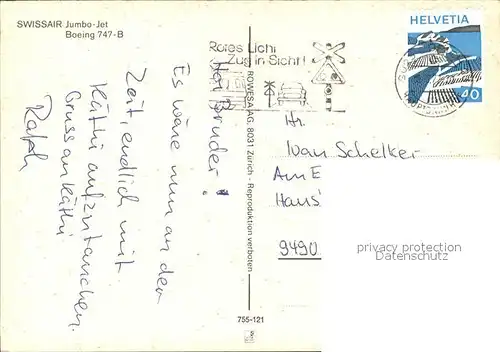 SWISSAIR Jumbo-Jet
Boeing 747-B
Hoi Bruder!
Es wäre nun an der
Zeit, endlich mit
Käthi aufzutauchen.
Gruss an Käthi
Ralph
ROWESA AG, 8031 Zürich - Reproduktion verboten
755-121
Rotes Licht
Zug in Sicht!
HELVETIA
40
Hr.
Ivan Schelker
Am E
Hans'
9490
privacy protection
Datenschutz